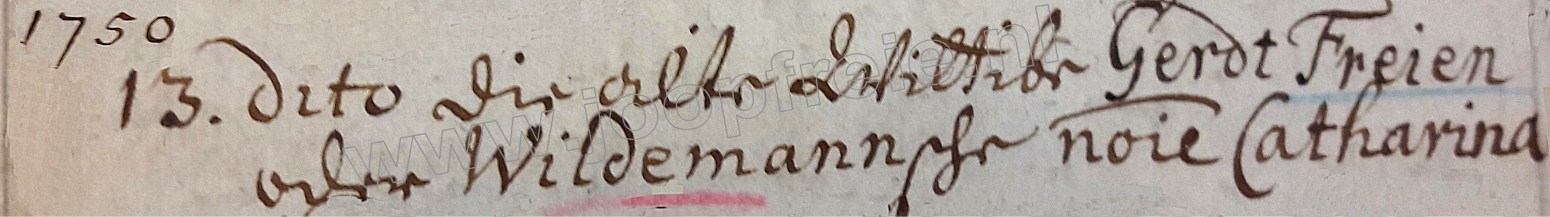 1750
13. dito die alte Wittibe Gerdt Freien
oder Wildemannsche noie Catharina
www.joopfreie.nl